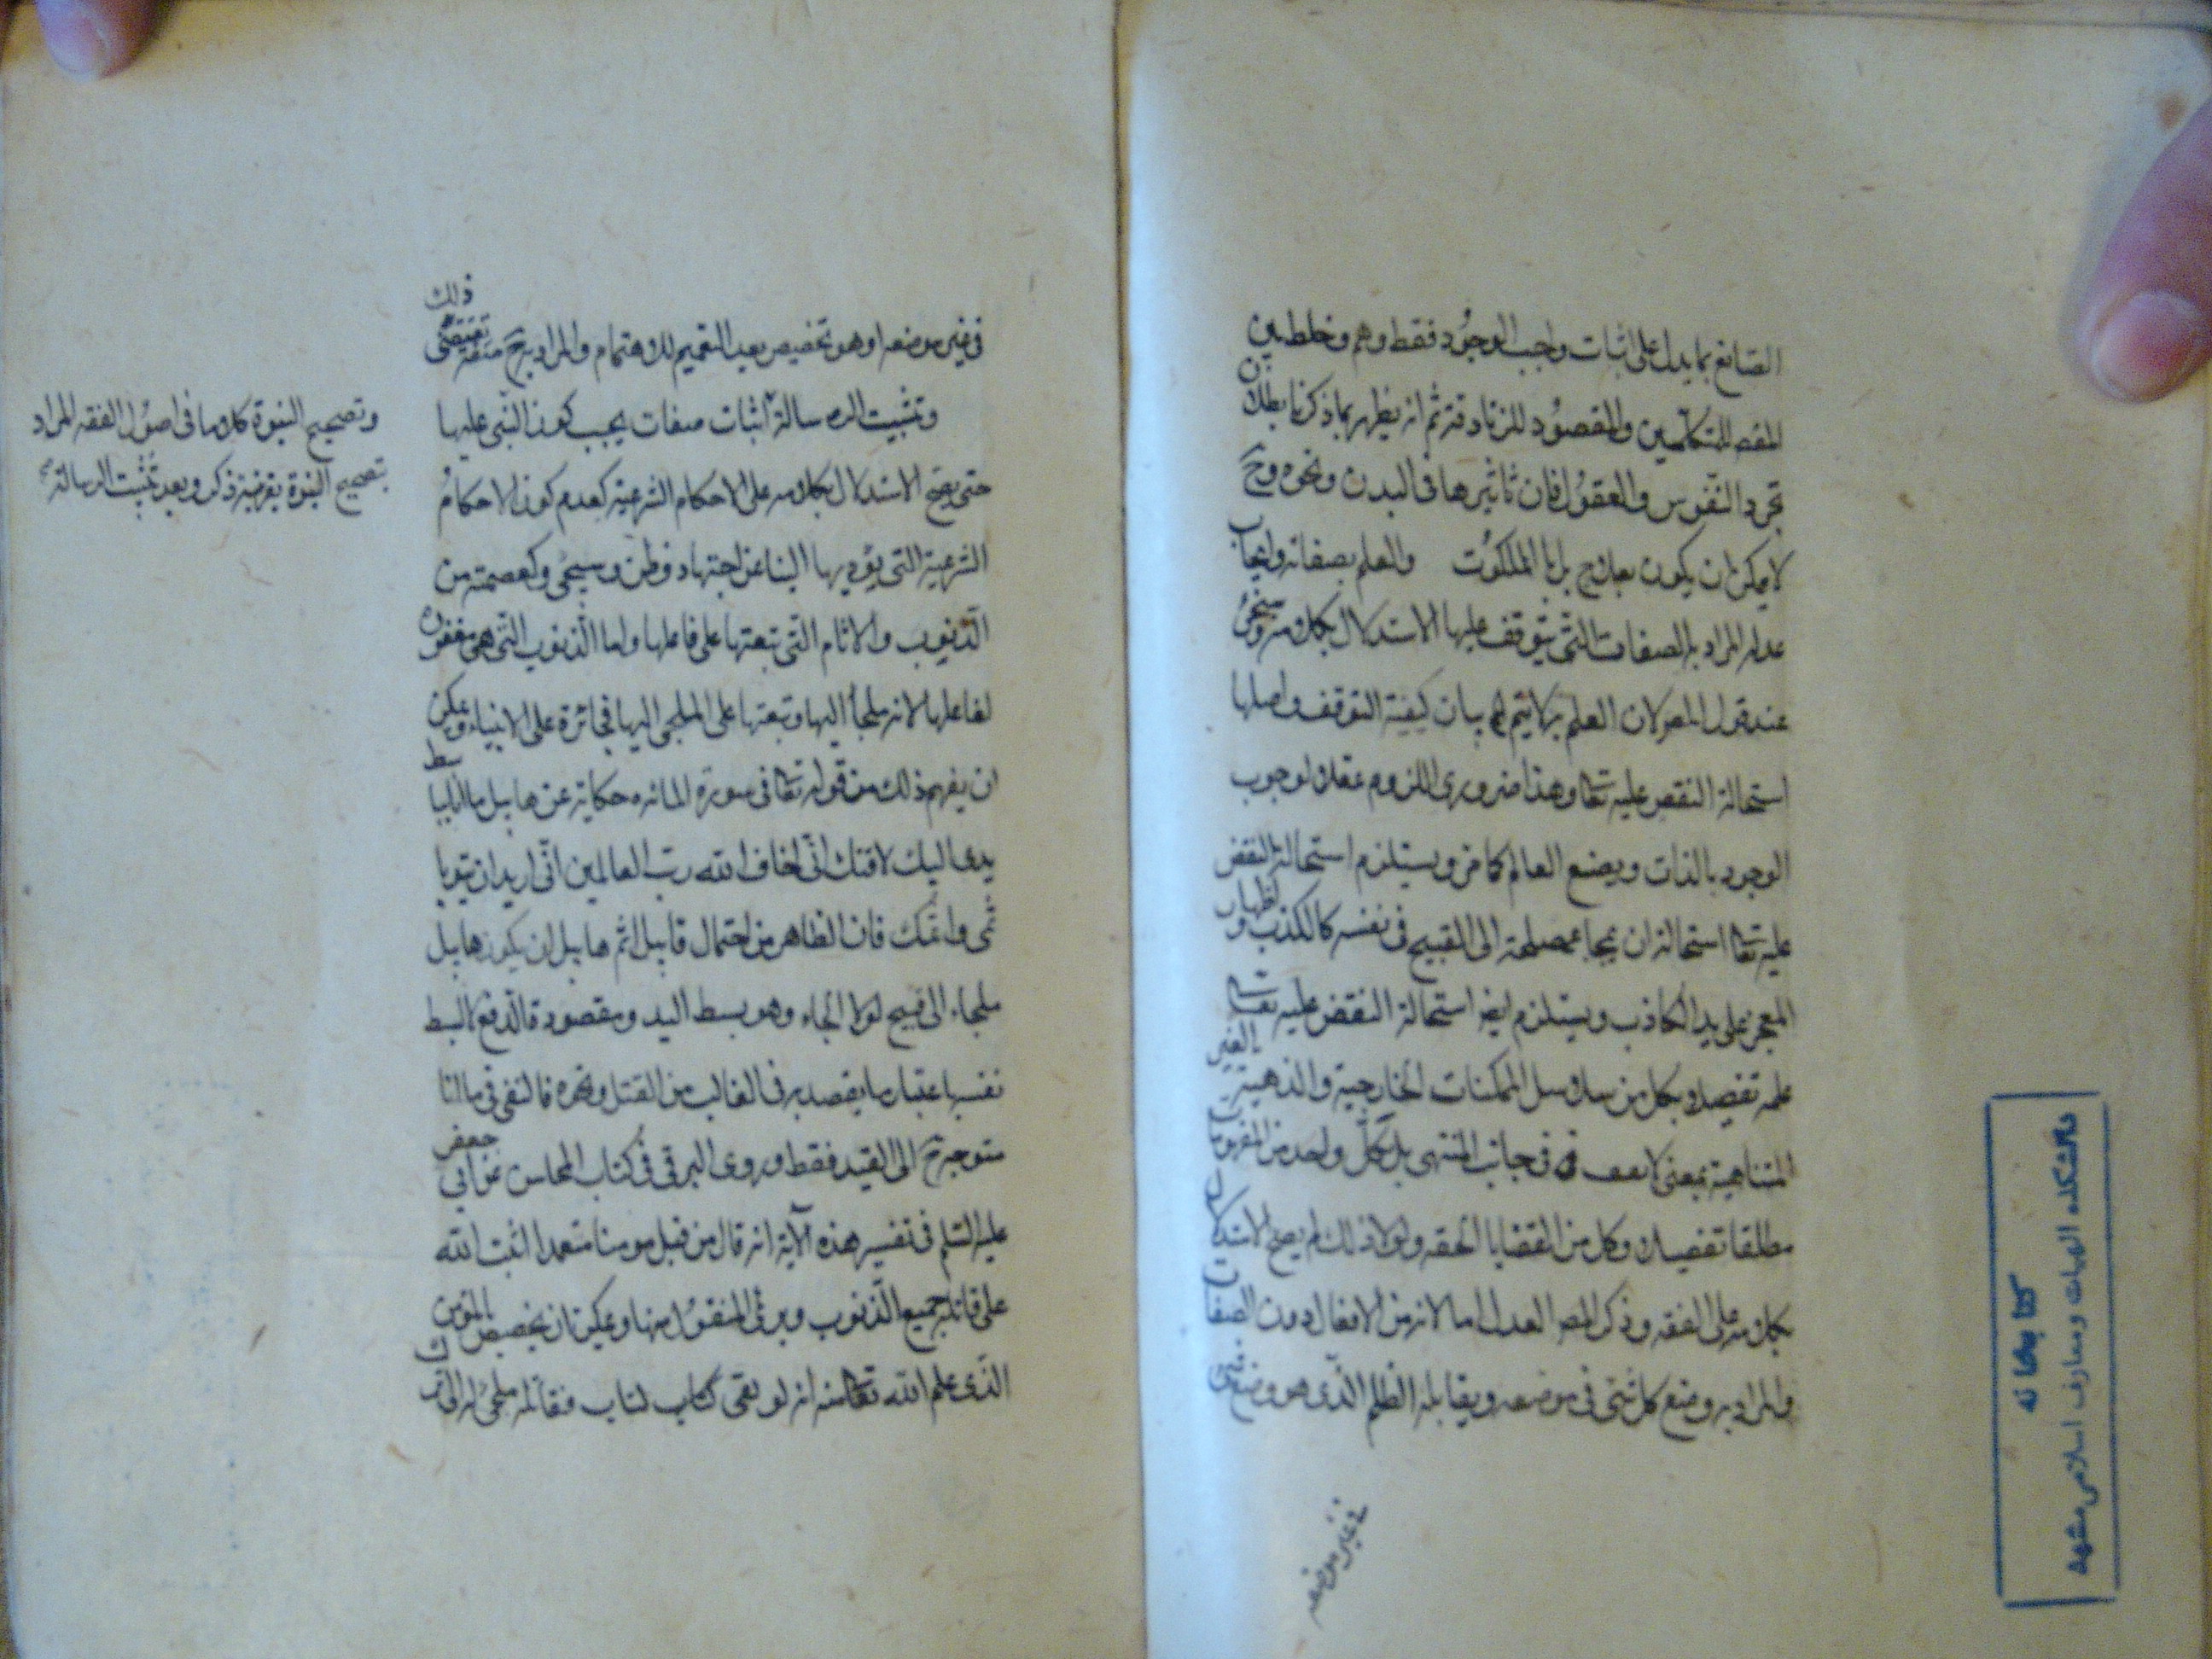 الصانع بما يدل على اثبات واجب الوجود فقط وهم وخلط بين
المقص للمتكلمين والمقصود للزنادقة ثم انه يظهر بما ذكرنا بطلان
تجرد النفوس والعقول فان تأثيرها في البدن ونحوه وح
لا يمكن ان يكون بعلاج بل بالملكوت والعلم بصفاته وايجاب
عدله المراد بالصفات التي يتوقف عليها الاستدلال بكلامه
عند قول المص لان العلم به لا يتم بيان كيفية التوقف واصلها
استحالة النقص عليه تعالى وهذا ضروري اللزوم عقلا لوجوب
الوجود بالذات ويصنع العالم كما مر ويستلزم استحالة النقص
عليه تعالى استحالة ان يجاء بمصلحة الى القبيح في نفسه كالكذب واظهار
المعجز على يد الكاذب ويستلزم ايض استحالة النقص عليه تعالى
علمه تفصيلا بكل من سلاسل الممكنات الخارجية والذهنية الغير
المتناهية بمعنى لا يقف في جانب المنتهى بل بكل واحد من المفهومات
مطلقا تفصيلا وكل من القضايا الحقه ولولا ذلك لم يصح الاستدلال
بكلامه على الفقه وذكر المص العدل اما لانه من الافعال دون الصفات
والمراد به وضع كل شئ في موضعه ويقابله الظلم الذي هو وضع شئ
في غير موضعه
كتابخانه
دانشكده الهيات ومعارف اسلامى مشهد
في غير موضعه او هو تخصيص بعد التعميم للاهتمام والمراد به ح
ذلك
وتثبيت الرسالة اثبات صفات يجب كون النبي عليها
حتى يصح الاستدلال بكلامه على الاحكام الشرعية كعدم كون الاحكام
الشرعية التي يؤديها الينا عن اجتهاد وظن وسيجئ وكعصمته من
الذنوب والاثام التي تبعتها على فاعلها واما الذنوب التي هي مغفورة
لفاعلها لانه ملجأ اليها وتبعتها على الملجئ اليها فجائزة على الانبياء ويمكن
ان يفهم ذلك من قوله تعالى في سورة المائده حكاية عن هابيل ما انا بباسط
يدى اليك لاقتلك انى اخاف الله رب العالمين انى اريد ان تبوء با
ثمى واثمك فان الظاهر من احتمال قابيل اثم هابيل ان يكون هابيل
ملجاء الى قبيح لولا الجاء وهو بسط اليد ومقصوده الدفع لا البسط
نفسه باعتبار ما يقصد به في الغالب من القتل ونحوه فالنفى في ما انا
متوجه ح الى القيد فقط وروى البرقى في كتاب المحاسن عن ابي جعفر
عليه السلم في تفسير هذه الآية انه قال من قتل مومنا متعمدا اثبت الله
على قاتله جميع الذنوب وبرئ المقتول منها ويمكن ان يخصص بالمؤمن
الذى علم الله تعالى منه انه لو بقى لتاب فقاتله ملجئ له الى
وتصحيح النبوة كلاهما في اصول الفقه المراد
بتصحيح النبوة بقرينة ذكره بعد تثبيت الرسالة